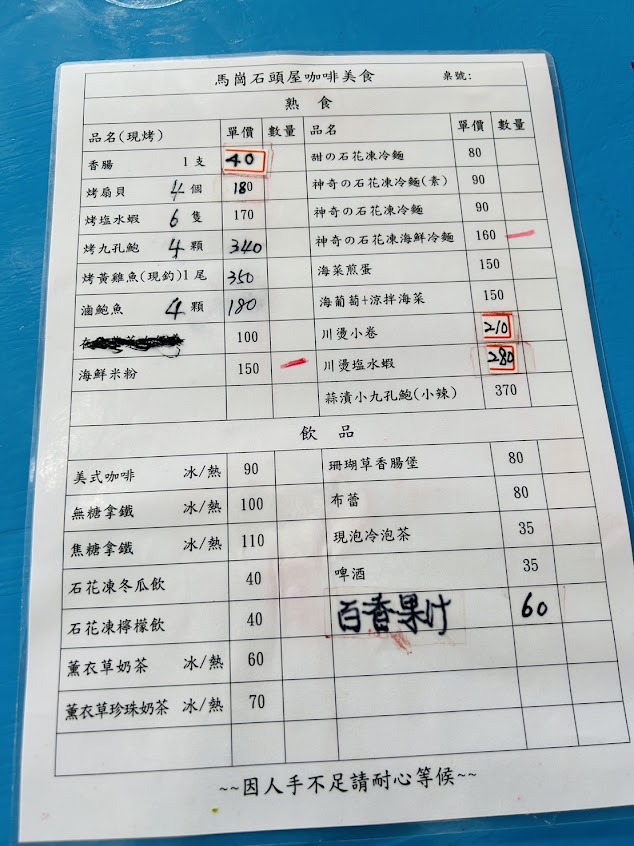 馬崗石頭屋咖啡美食 桌號:
熟 食
品名(現烤) 單價 數量 品名 單價 數量
香腸 1支 40 甜の石花凍冷麵 80
烤扇貝 4個 180 神奇の石花凍冷麵(素) 90
烤塩水蝦 6隻 170 神奇の石花凍冷麵 90
烤九孔鮑 4顆 340 神奇の石花凍海鮮冷麵 160
烤黃雞魚(現釣)1尾 350 海菜煎蛋 150
滷鮑魚 4顆 180 海葡萄+涼拌海菜 150
100 川燙小卷 210
海鮮米粉 150 川燙塩水蝦 280
蒜漬小九孔鮑(小辣) 370
飲 品
美式咖啡 冰/熱 90 珊瑚草香腸堡 80
無糖拿鐵 冰/熱 100 布蕾 80
焦糖拿鐵 冰/熱 110 現泡冷泡茶 35
石花凍冬瓜飲 40 啤酒 35
石花凍檸檬飲 40 百香果汁 60
薰衣草奶茶 冰/熱 60
薰衣草珍珠奶茶 冰/熱 70
~~因人手不足請耐心等候~~